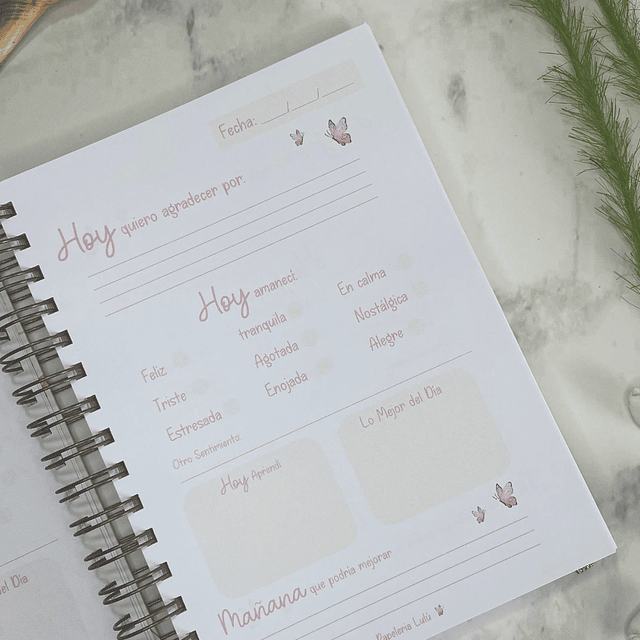 Fecha: __/__/__
Hoy quiero agradecer por:
Hoy amanecí:
Feliz
tranquila
En calma
Triste
Agotada
Nostálgica
Estresada
Enojada
Alegre
Otro Sentimiento:
Hoy Aprendí
Lo Mejor del Día
Mañana que podría mejorar
Papelería Lulú
del Día